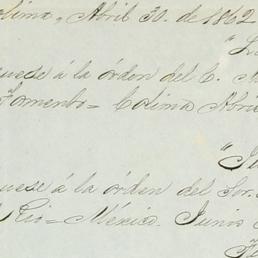 olima, Abril 30. de 1862
uese á la órden del C. M
Fomento = Colima Abri
uese á la órden del Sor.
Rio = México. Junio